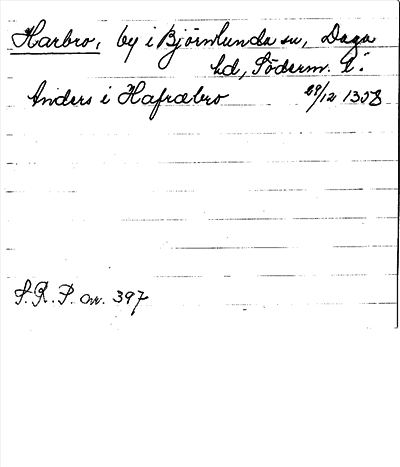 Harbro, by i Björnlunda sn, Daga
hd, Söderm. L:
Anders i Hafræbro 29/12 1358
S.R.P. nr. 397